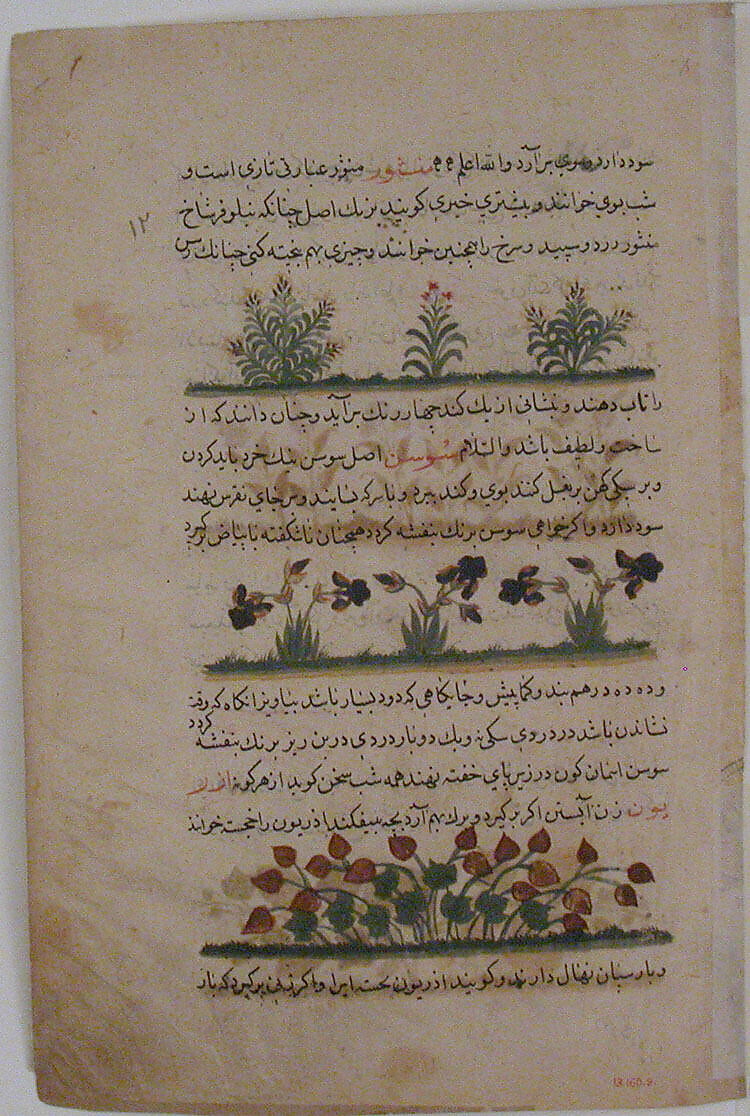 سود دارد و موی برآرد والله اعلم منثور منثور عبارتی تازی است و
شب بوی خوانند و بیشتری خیری کویند بزنك اصل چنانکه نیلوفر شاخ
منثور زرد و سپید و سرخ را همچنین خوانند و چیزی بهم بخیته کنی چنانك رس
۱۲
را تاب دهند و نشانی از یك کند چهار رنك برآید و چنان دانند که از
ساخت و لطیف باشد والسلام سوسن اصل سوسن بنك خرد باید کردن
و بر سیکی کهن بربغل کنند بوی و کند ببرد و با سرکه بسایند و بر جای نقرس نهند
سود دارد و اکر خواهی سوسن برنك بنفشه کردد همچنان ناشکفته با بیاض برکیرد
و ده ده در هم بند و کما بیش و جایکاهی که دود بسیار باشد بیاویز آنکاه که وقت
نشاندن باشد در دردی سیکی نه و یك دو بار دردی در بن ریز برنك بنفشه کردد
سوسن آسمان کون در زیر پای خفته نهند همه شب سخن کوید از هر کونه اذر
یون زن آبستن اکر برکیرد و برك بهم آرد بچه بیفکند اذریون را خجسته خوانند
و پارسیان بفال دارند و کویند اذریون خجسته ایرا و اکر زنی برکیرد که بار
13.160.9